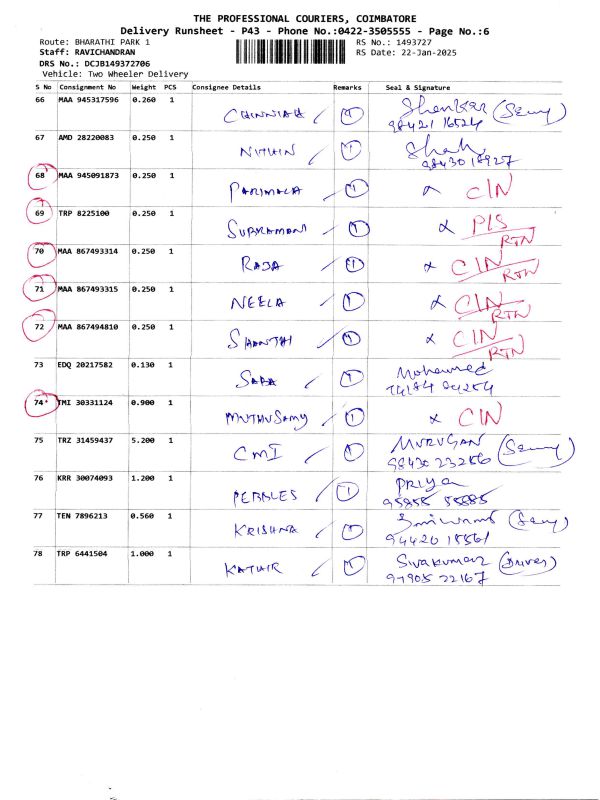 THE PROFESSIONAL COURIERS, COIMBATORE
Delivery Runsheet - P43 - Phone No.:0422-3505555 - Page No.:6
Route: BHARATHI PARK 1 RS No.: 1493727
Staff: RAVICHANDRAN RS Date: 22-Jan-2025
DRS No.: DCJB149372706
Vehicle: Two Wheeler Delivery
S No Consignment No Weight PCS Consignee Details Remarks Seal & Signature
66 MAA 945317596 0.260 1 CHINNIAH 1 Shenkar (Secy)
98421 16524
67 AMD 28220083 0.250 1 NITHIN 1 Shah
98430 18927
68 MAA 945091873 0.250 1 PARIMALA 1 x CIN
69 TRP 8225100 0.250 1 SUBRAMANI 1 x PIS
RTN
70 MAA 867493314 0.250 1 RAJA 1 x CIN
RTN
71 MAA 867493315 0.250 1 NEELA 1 x CIN
RTN
72 MAA 867494810 0.250 1 SHANTHI 1 x CIN
RTN
73 EDQ 20217582 0.130 1 SARA 1 Mohamed
74* TMI 30331124 0.900 1 MUTHUSAMY 1 x CIN
75 TRZ 31459437 5.200 1 CMI 1 MURUGAN (Secy)
98430 23256
76 KRR 30074093 1.200 1 PEBBLES 1 PRIYA
77 TEN 7896213 0.560 1 KRISHNA 1 (Secy)
94420 18561
78 TRP 6441504 1.000 1 KATHIR 1 Sivakumar (Driver)
97905 22167